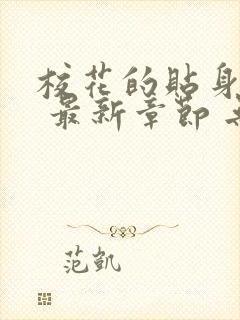 校花的贴身
最新章节
范凯